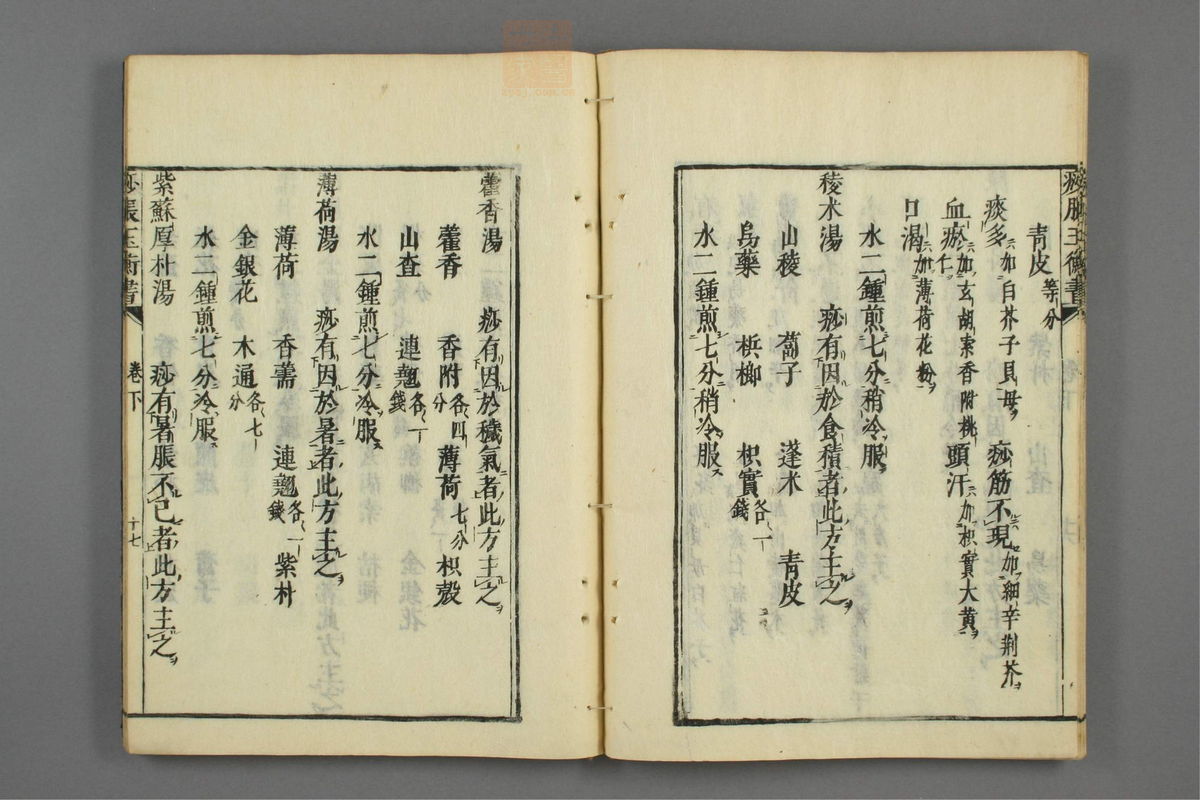 痧脹玉衡書
青皮 等分
痰多 加白芥子貝母 痧筋不現 加細辛荊芥
血瘀 加玄胡索香附桃仁 頭汗 加枳實大黃
口渴 加薄荷花粉
水二鍾煎七分稍冷服
稜木湯 痧有因於食積者此方主之
山稜 蔔子 蓬木 青皮
烏藥 梹榔 枳實 各一錢
水二鍾煎七分稍冷服
藿香湯 痧有因於穢氣者此方主之
藿香 香附 各四分 薄荷 七分 枳殼
山查 連翹 各一錢
水二鍾煎七分冷服
薄荷湯 痧有因於暑者此方主之
薄荷 香薷 連翹 各一錢 紫朴
金銀花 木通 各七分
水二鍾煎七分冷服
紫蘇厚朴湯 痧有暑脹不已者此方主之
痧脹玉衡書 卷下 十七